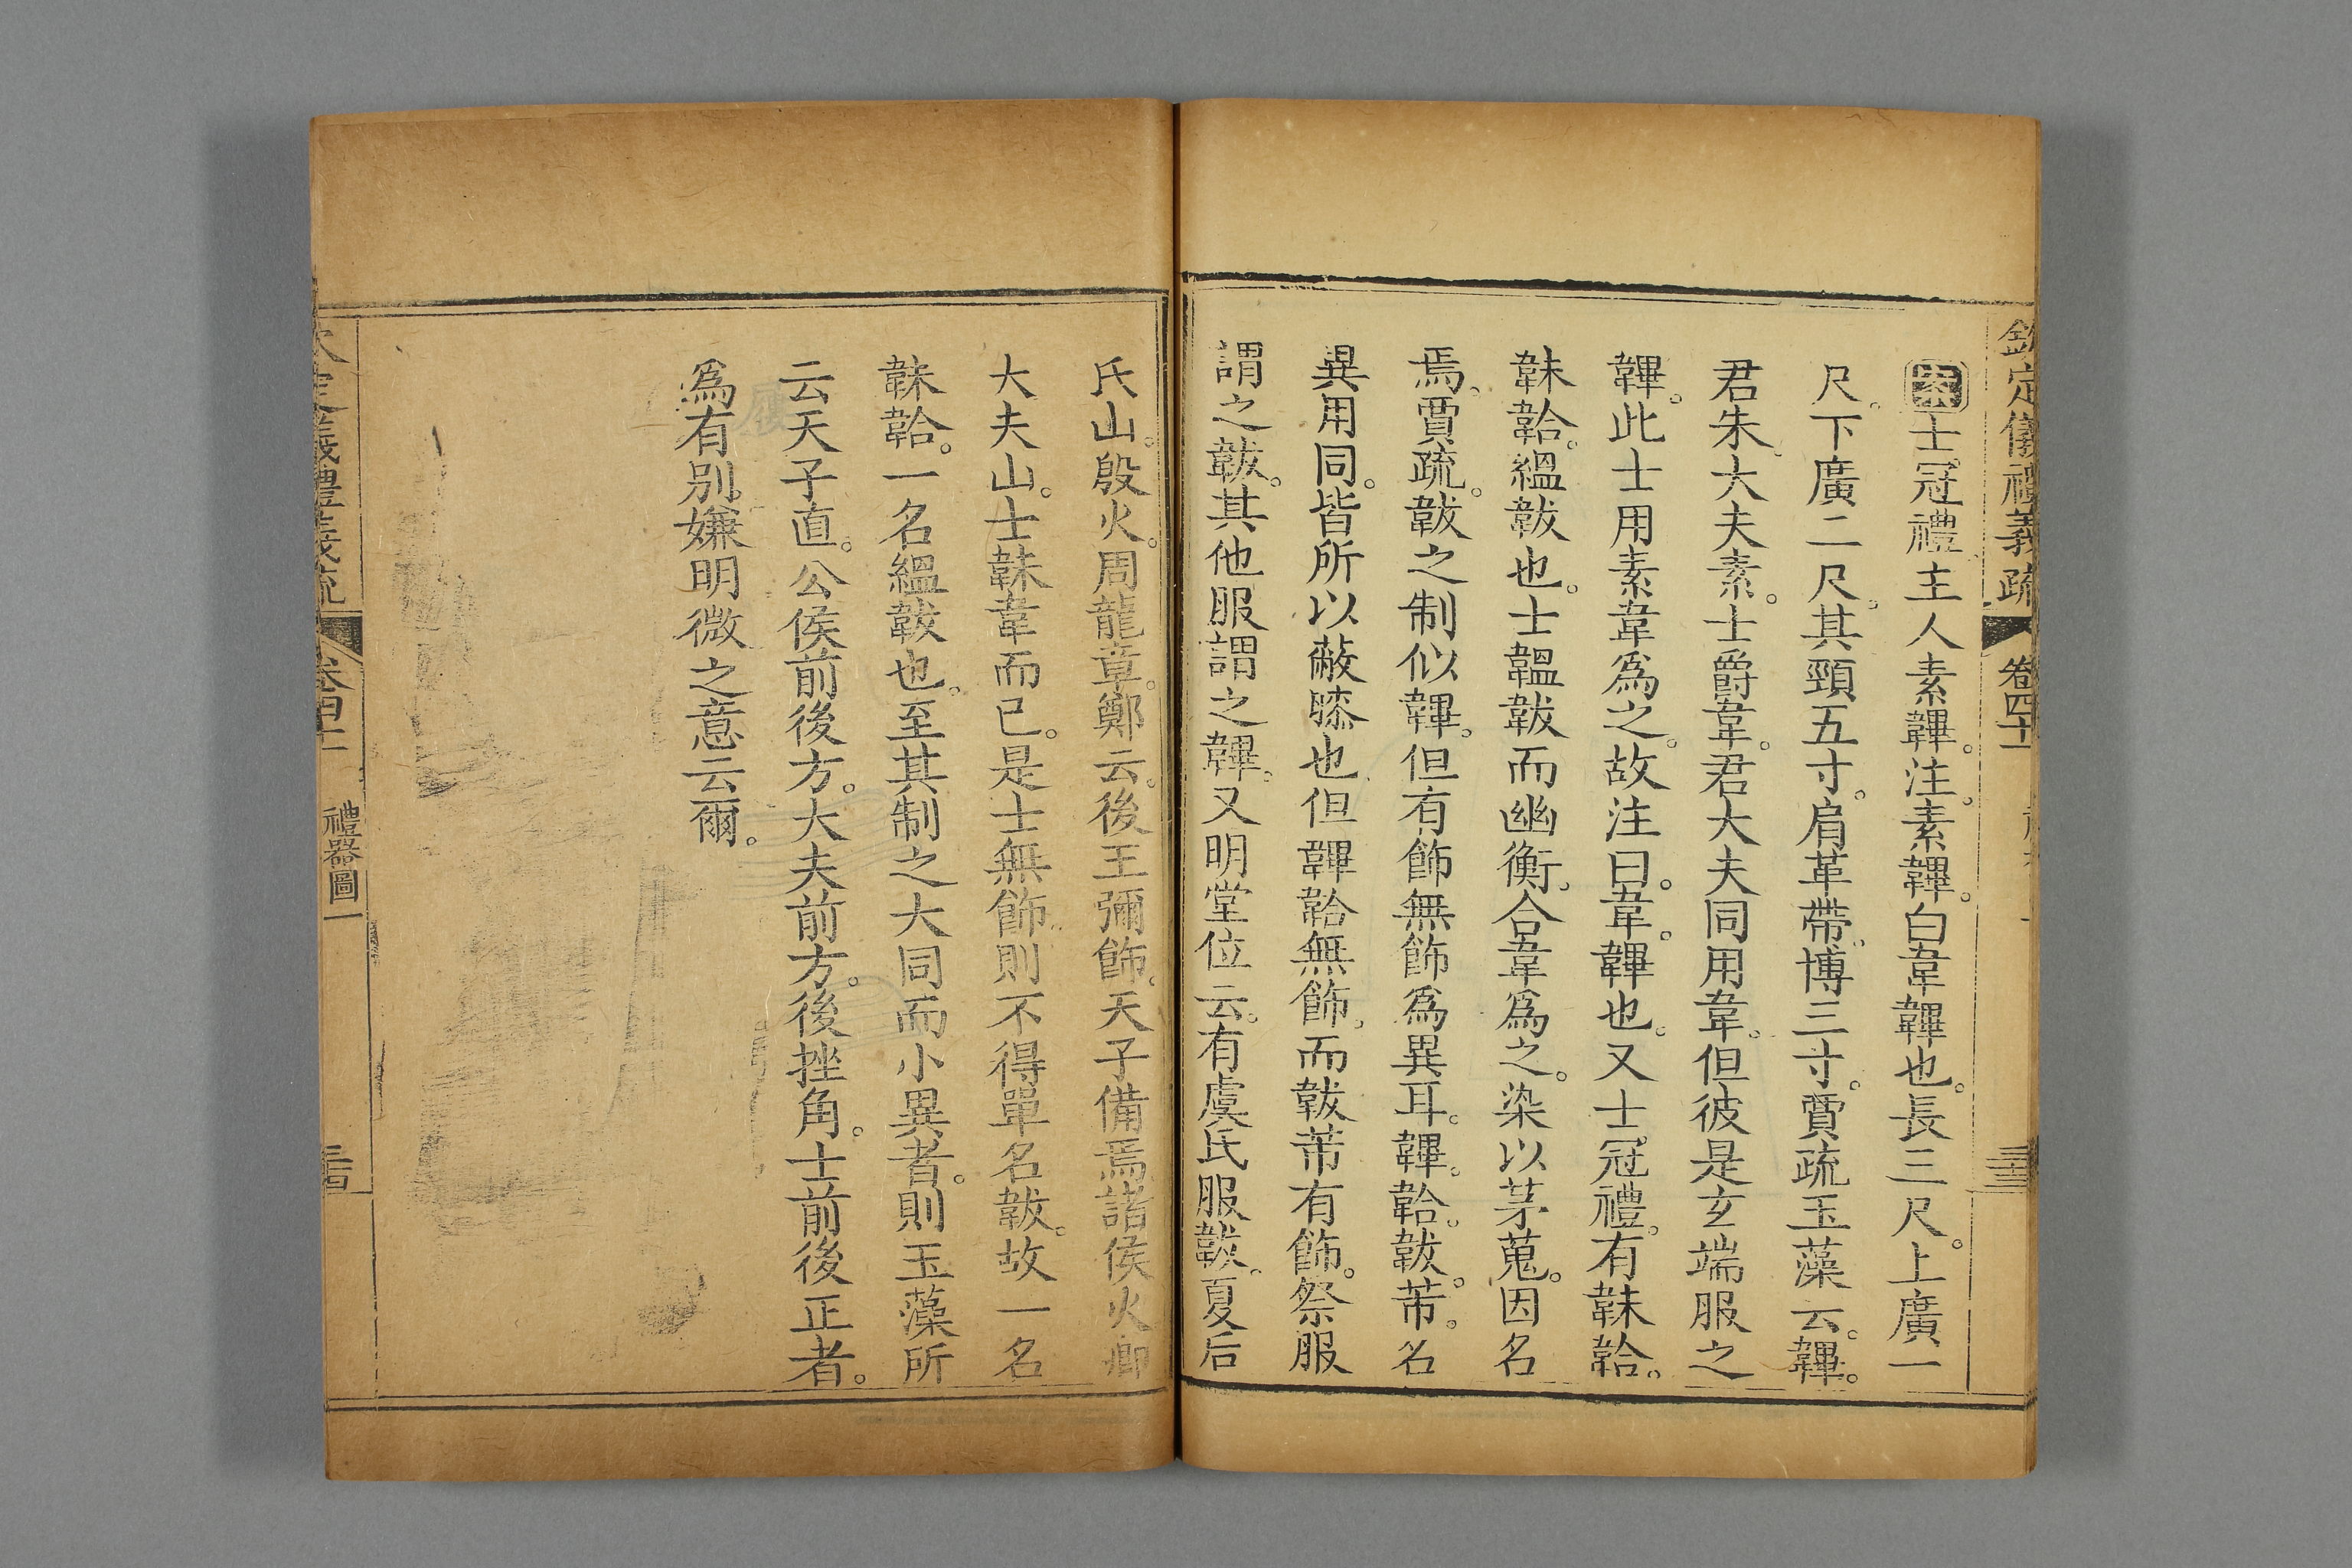 欽定儀禮義疏 卷四十一
案士冠禮主人素韠。注。素韠。白韋韠也。長三尺。上廣一
尺。下廣二尺。其頸五寸。肩革帶。博三寸。賈疏玉藻云。韠。
君朱。大夫素。士爵韋。君大夫同用韋。但彼是玄端服之
韠。此士用素韋爲之。故注曰。韋。韠也。又士冠禮。有韎韐。
韎韐。縕韍也。士韞韍而幽衡。合韋爲之。染以茅蒐。因名
焉。賈疏。韍之制似韠。但有飾無飾爲異耳。韠。韐。韍。芾。名
異用同。皆所以蔽膝也但韠韐無飾。而韍芾有飾。祭服
謂之韍。其他服謂之韠。又明堂位云。有虞氏服韍。夏后
氏山。殷火。周龍章。鄭云。後王彌飾。天子備焉諸侯火卿
大夫山。士韎韋而已。是士無飾則不得單名韍。故一名
韎韐。一名縕韍也。至其制之大同而小異者。則玉藻所
云天子直。公侯前後方。大夫前方。後挫角。士前後正者。
爲有別。嫌明微之意云爾。
欽定儀禮義疏 卷四十一 禮器圖一